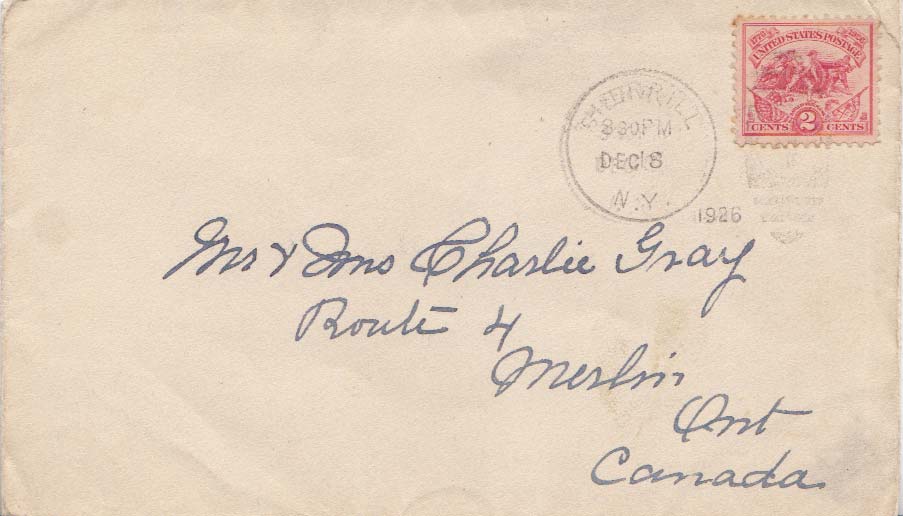 1776 1926
UNITED STATES POSTAGE
CENTS 2 CENTS
SHERRILL
3 30 PM
DEC 18
N.Y.
1926
Mr & Mrs Charlie Gray
Route 4
Merlin
Ont
Canada